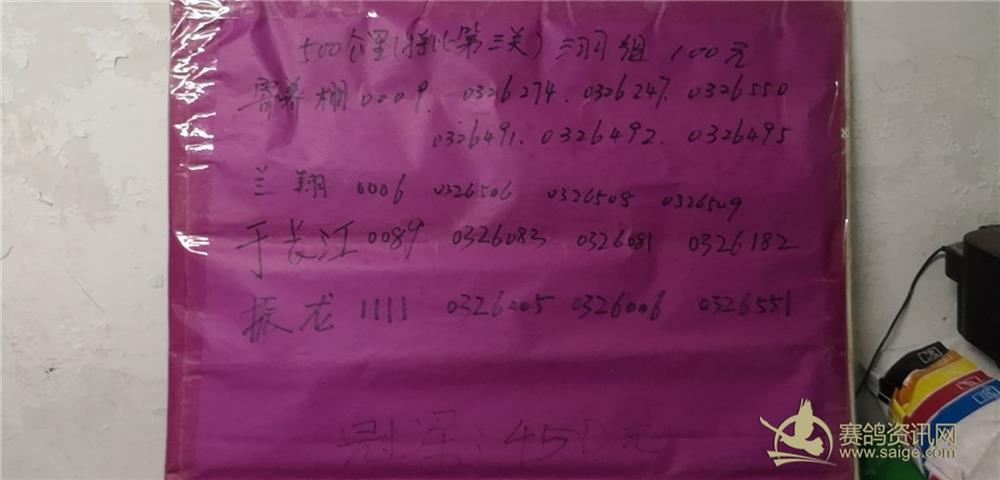 500公里(特比第三关) 三羽组 100元
寄养棚 0009. 0326274. 0326247. 0326550
0326491. 0326492. 0326495
兰翔 0006 0326506 0326508 0326509
于长江 0089 0326083 0326081 0326182
振龙 1111 0326005 0326006 0326551
450元
赛鸽资讯网
www.saige.com